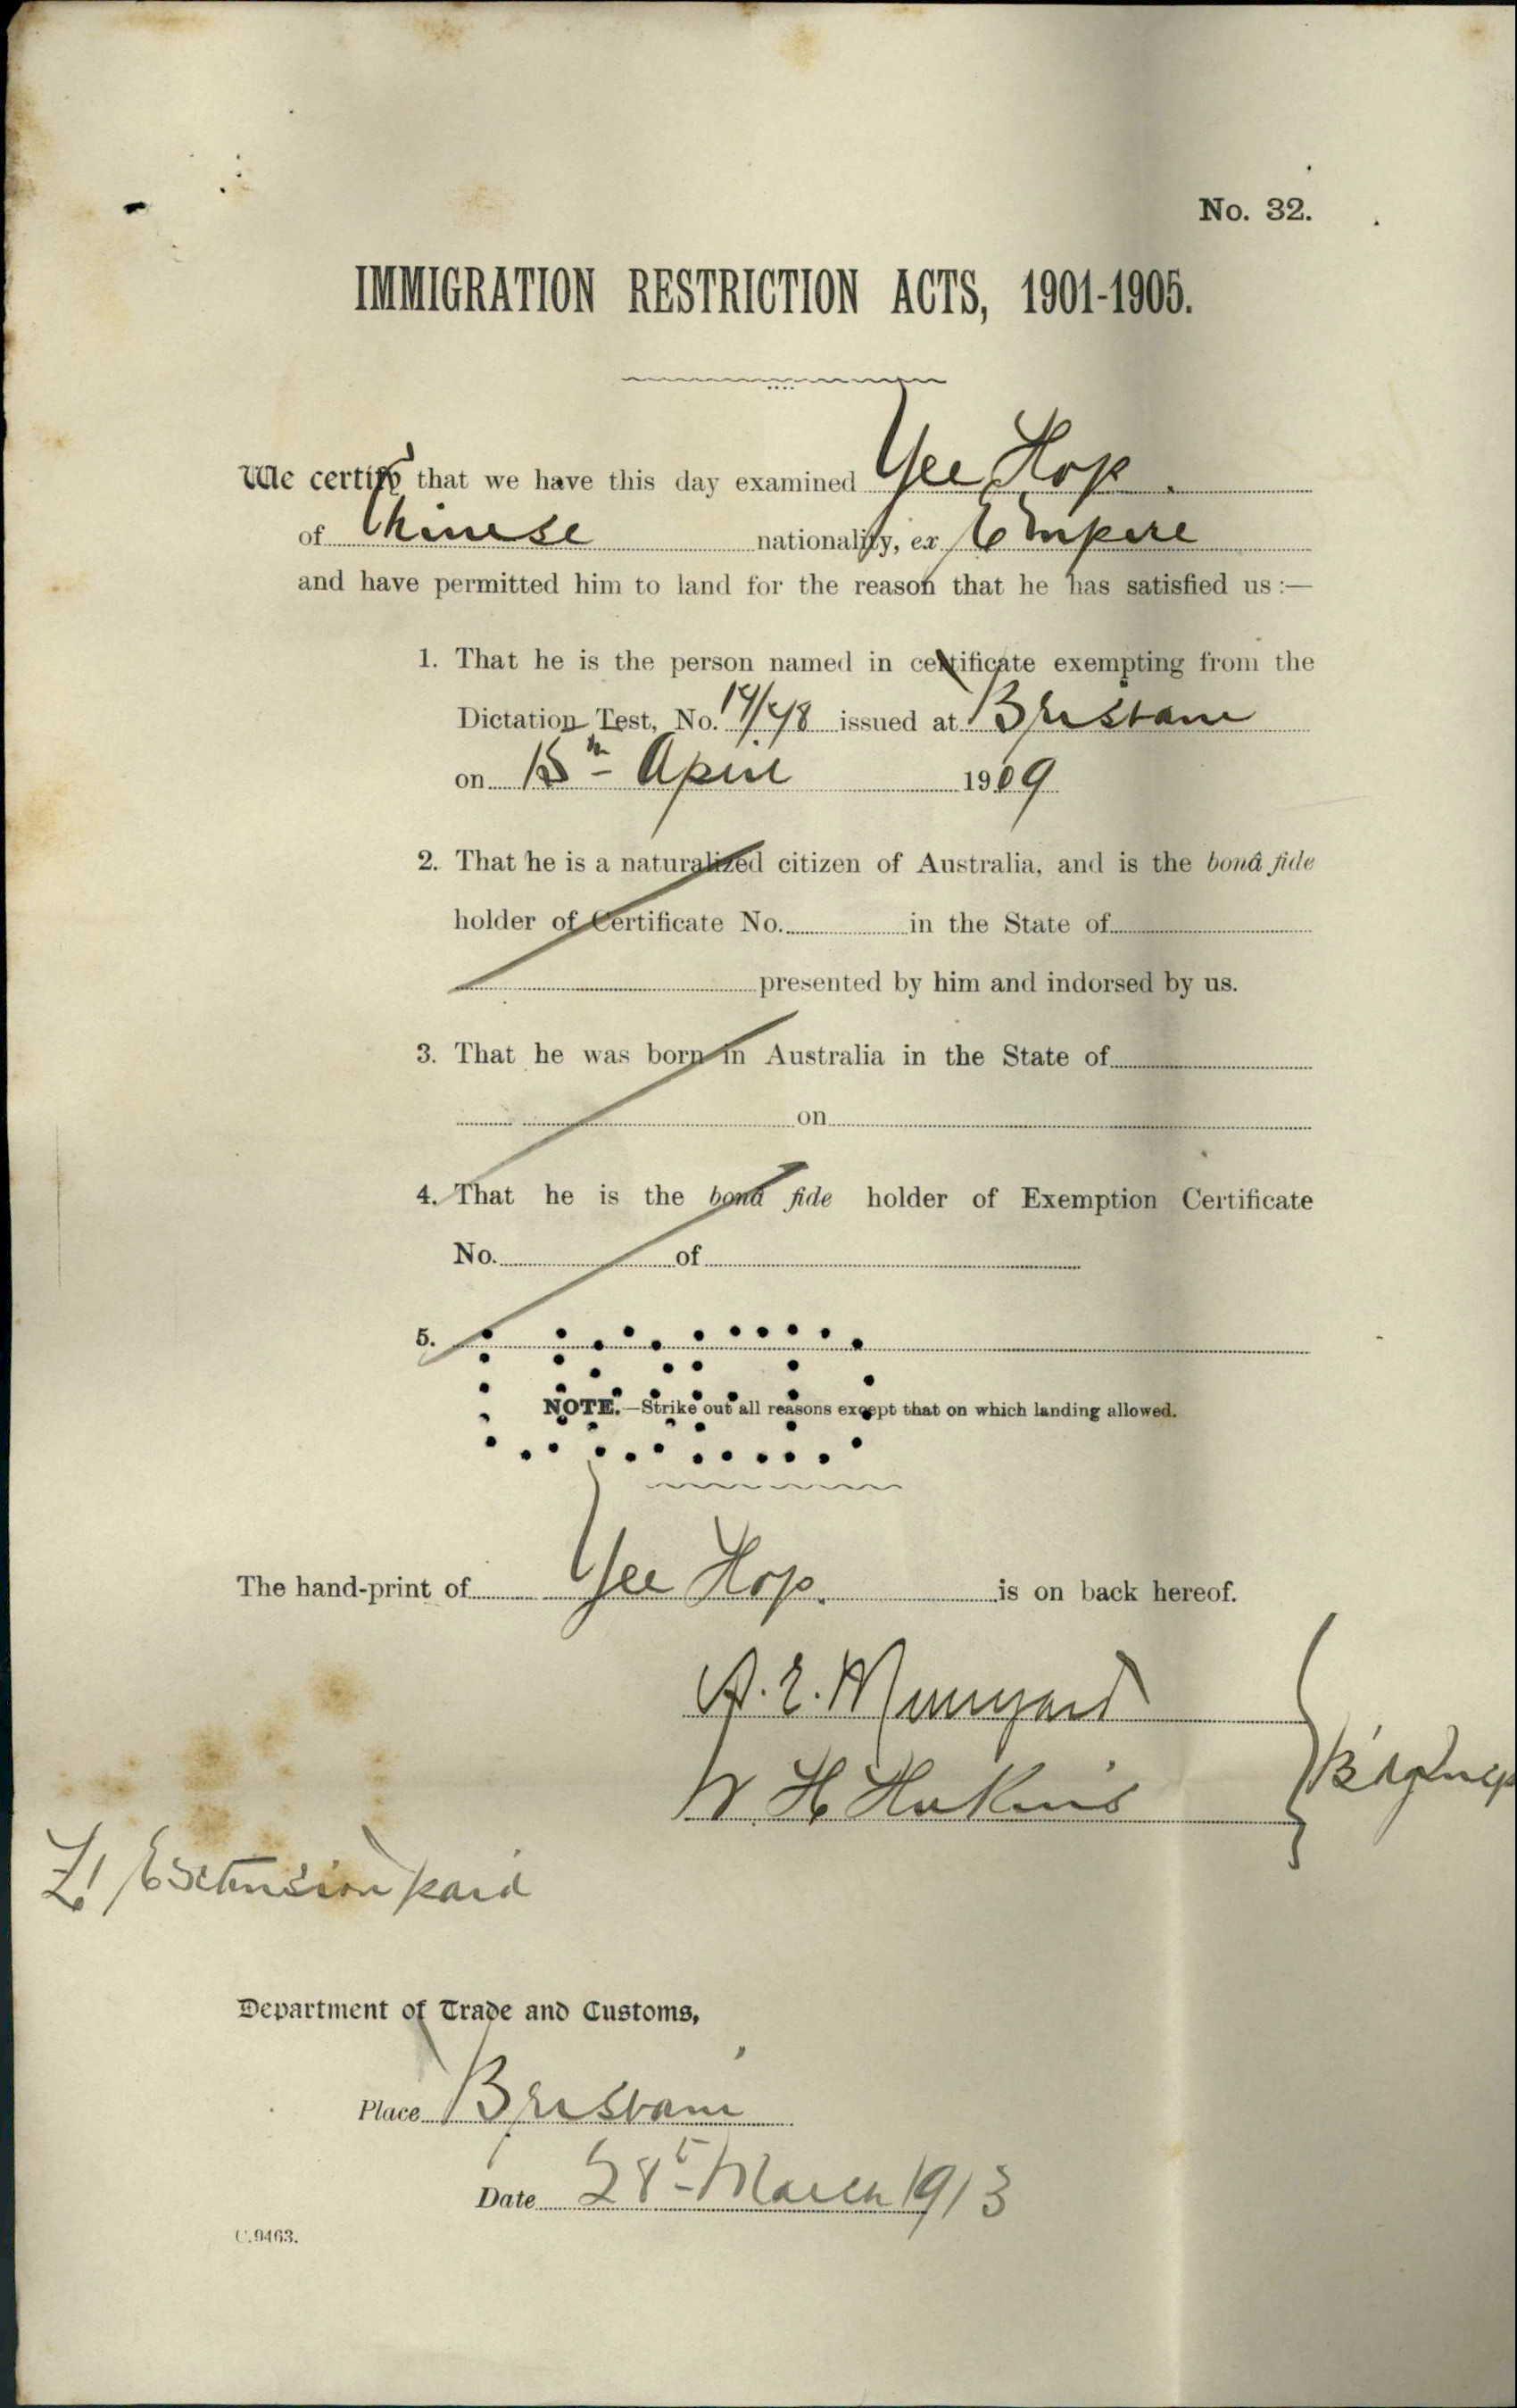 No. 32.
IMMIGRATION RESTRICTION ACTS, 1901-1905.
We certify that we have this day examined Yee Hop.
of Chinese nationality, ex Empire
and have permitted him to land for the reason that he has satisfied us :—
1. That he is the person named in certificate exempting from the
Dictation Test, No. issued at Brisbane
on 15th April 1909
2. That he is a naturalized citizen of Australia, and is the bonâ fide
holder of Certificate No. in the State of
presented by him and indorsed by us.
3. That he was born in Australia in the State of
on
4. That he is the bonâ fide holder of Exemption Certificate
No. of
5.
NOTE.—Strike out all reasons except that on which landing allowed.
The hand-print of Yee Hop. is on back hereof.
A. E.
W. H.
£1 Extension paid
Department of Trade and Customs,
Place Brisbane
Date 28th March 1913
C.9463.